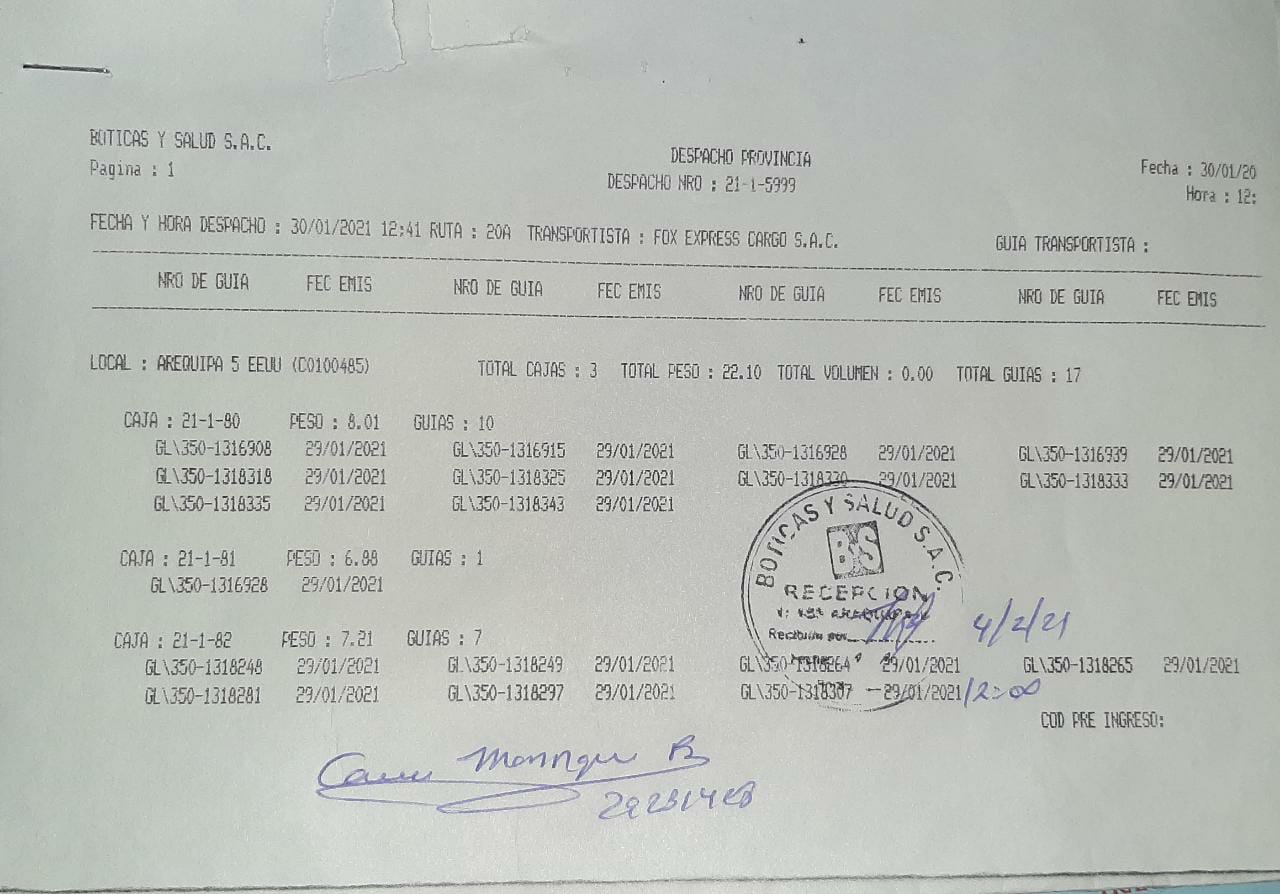 BOTICAS Y SALUD S.A.C.
Pagina : 1
DESPACHO PROVINCIA
DESPACHO NRO : 21-1-5999
Fecha : 30/01/20
Hora : 12:
FECHA Y HORA DESPACHO : 30/01/2021 12:41 RUTA : 20A TRANSPORTISTA : FOX EXPRESS CARGO S.A.C. GUIA TRANSPORTISTA :
NRO DE GUIA FEC EMIS NRO DE GUIA FEC EMIS NRO DE GUIA FEC EMIS NRO DE GUIA FEC EMIS
LOCAL : AREQUIPA 5 EEUU (C0100485) TOTAL CAJAS : 3 TOTAL PESO : 22.10 TOTAL VOLUMEN : 0.00 TOTAL GUIAS : 17
CAJA : 21-1-80 PESO : 8.01 GUIAS : 10
GL\350-1316908 29/01/2021 GL\350-1316915 29/01/2021 GL\350-1316928 29/01/2021 GL\350-1316939 29/01/2021
GL\350-1318318 29/01/2021 GL\350-1318325 29/01/2021 GL\350-1318330 29/01/2021 GL\350-1318333 29/01/2021
GL\350-1318335 29/01/2021 GL\350-1318343 29/01/2021
BOTICAS Y SALUD S.A.C.
BS
RECEPCION
Recibido por
4/2/21
CAJA : 21-1-81 PESO : 6.88 GUIAS : 1
GL\350-1316928 29/01/2021
CAJA : 21-1-82 PESO : 7.21 GUIAS : 7
GL\350-1318248 29/01/2021 GL\350-1318249 29/01/2021 GL\350-1318264 29/01/2021 GL\350-1318265 29/01/2021
GL\350-1318281 29/01/2021 GL\350-1318297 29/01/2021 GL\350-1318307 29/01/2021 12:00
COD PRE INGRESO: